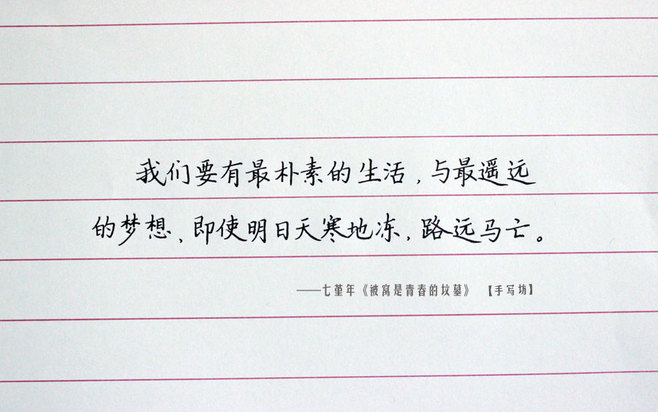 我们要有最朴素的生活，与最遥远
的梦想、即使明日天寒地冻，路远马亡。
——七堇年《被窝是青春的坟墓》 【手写坊】